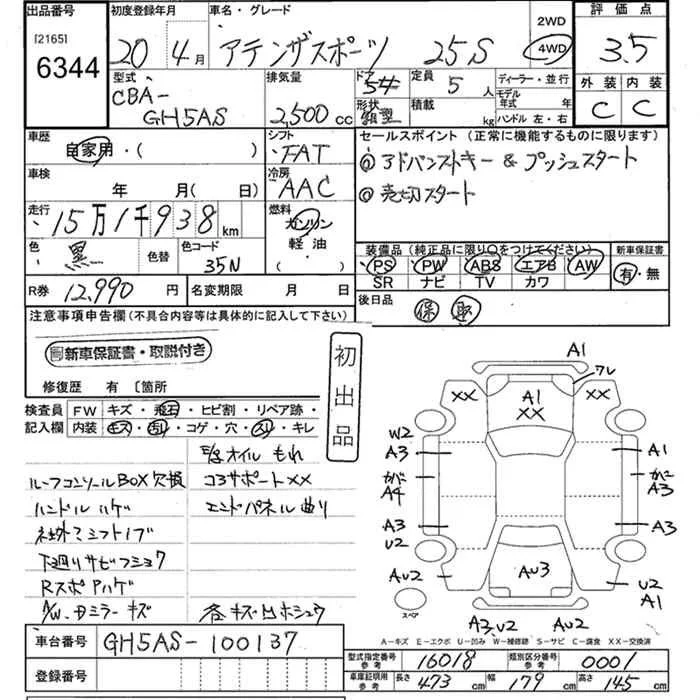 出品番号 初度登録年月 車名・グレード 2WD 評価点
[2165] 6344 20 4月 アテンザスポーツ 25S 4WD 3.5
型式 排気量 ドア 定員 ディーラー・並行 外装 内装
CBA- GH5AS 2,500 cc 5# 5人 モデル年式 年 C C
形状 積載 kg ハンドル 左・右
車歴 シフト セールスポイント(正常に機能するものに限ります)
自家用・( ) FAT アドバンストキー & プッシュスタート
車検 冷房 売切スタート
年 月(日) AAC
走行 燃料
15万1千938km ガソリン
色 色替 色コード 軽油 装備品(純正品に限り○をつけてください) 新車保証書
黒 35N ( ) PS PW ABS エアB AW 有・無
SR ナビ TV カワ
R券 12,990円 名変期限 月 日 後日品 保 取
注意事項申告欄(不具合内容等は具体的に記入して下さい)
新車保証書・取説付き
初出品
修復歴 有 〔箇所
検査員記入欄 FW キズ・飛石・ヒビ割・リペア跡・
内装 キズ・汚れ・コゲ・穴・スリ・キレ
オイルもれ
ルーフコンソールBOX欠損 コアサポートXX
ハンドルハゲ エンドパネル曲り
社外シフトノブ
下廻りサビフショク
RスポPハゲ
A/W.ドミラーキズ 各キズ凹ホシュウ
A1
ワレ
XX A1 XX XX
W2
A3 A1
A4 A3
A3 A3
U2
AU2 AU3 U2
A1
スペア
A3,U2 AU2
A-キズ E-エクボ U-凹み W-補修跡 S-サビ C-腐食 XX-交換済
車台番号 GH5AS-100137
登録番号
型式指定番号 参考 16018 類別区分番号 参考 0001
車庫証明用 参考 長さ 473 cm 幅 179 cm 高さ 145 cm